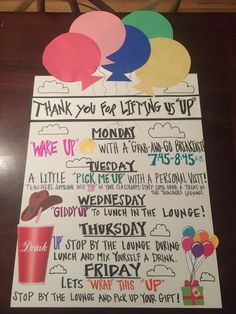 THANK YOU FOR LIFTING US "UP"
MONDAY
"WAKE UP" WITH A GRAB-AND-GO BREAKFAST!
7:45-8:45 AM
TUESDAY
A LITTLE "PICK ME UP" WITH A PERSONAL VISIT!
TEACHERS, SOMEONE WILL "POP" IN YOUR CLASSROOM! STAFF COME GRAB A TREAT IN
THE TEACHERS LOUNGE!
WEDNESDAY
"GIDDY UP" TO LUNCH IN THE LOUNGE!
THURSDAY
"UP" STOP BY THE LOUNGE DURING
LUNCH AND MIX YOURSELF A DRINK.
Drink
FRIDAY
LETS "WRAP THIS "UP"
STOP BY THE LOUNGE AND PICK UP YOUR GIFT!